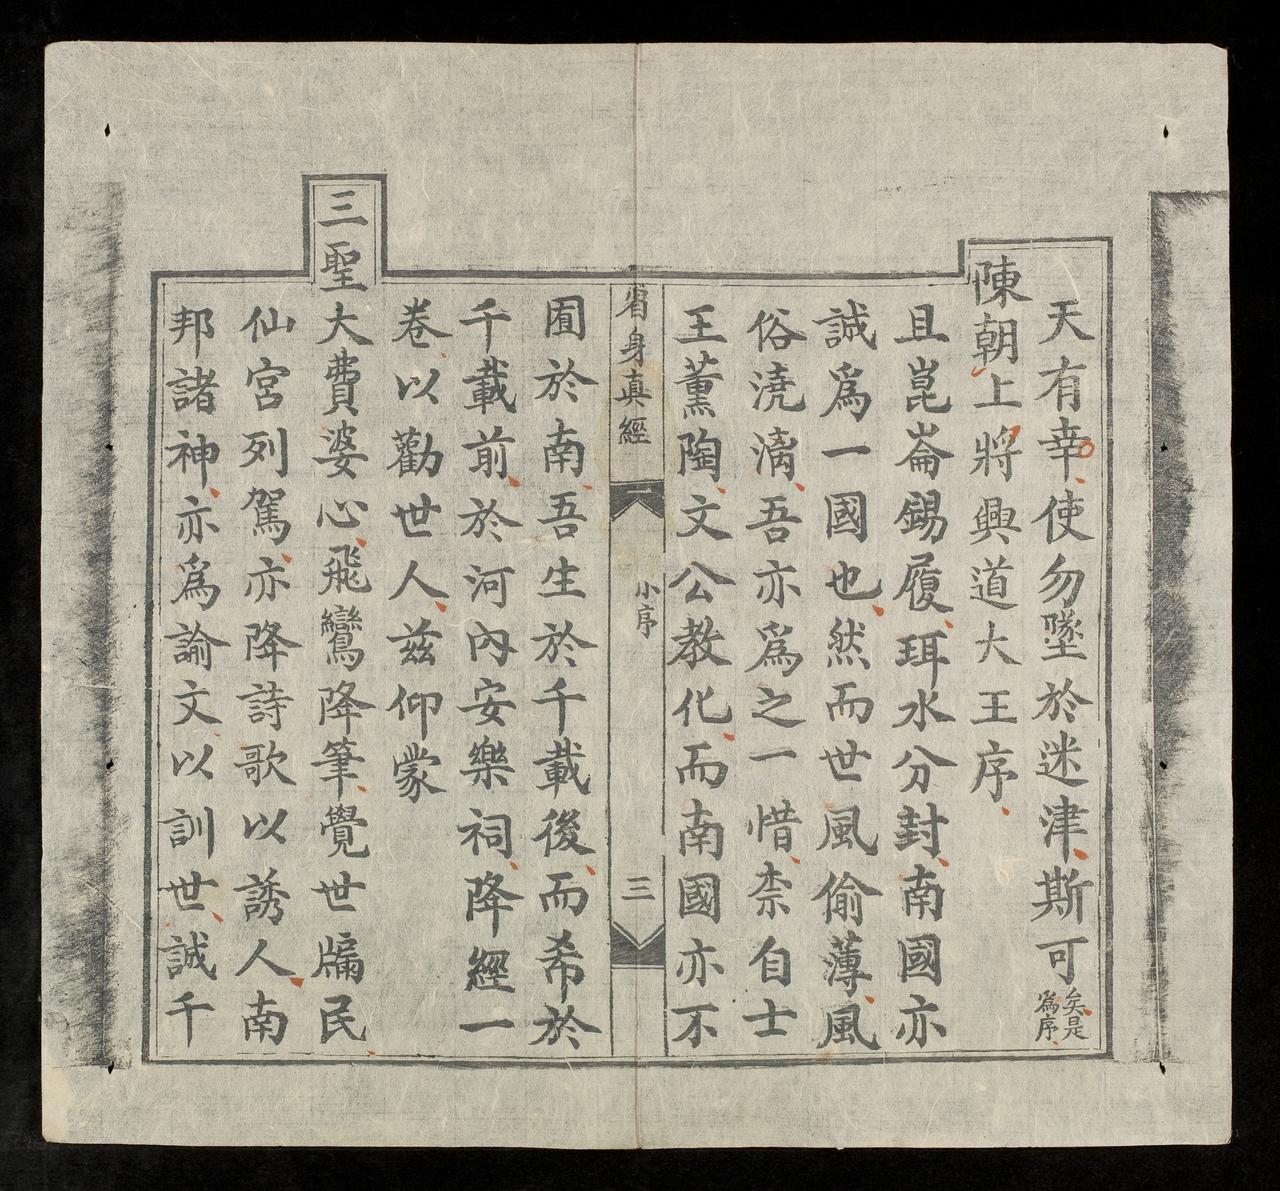 天有幸使勿墜於迷津斯可矣是爲序
陳朝上將興道大王序
且崑崙錫履珥水分封南國亦
誠爲一國也然而世風偷薄風
俗澆漓吾亦爲之一惜柰自士
王薰陶文公教化而南國亦不
省身真經
小序
三
囿於南吾生於千載後而希於
千載前於河內安樂祠降經一
卷以勸世人茲仰蒙
三聖大費婆心飛鸞降筆覺世牖民
仙宮列駕亦降詩歌以誘人南
邦諸神亦爲諭文以訓世誠千